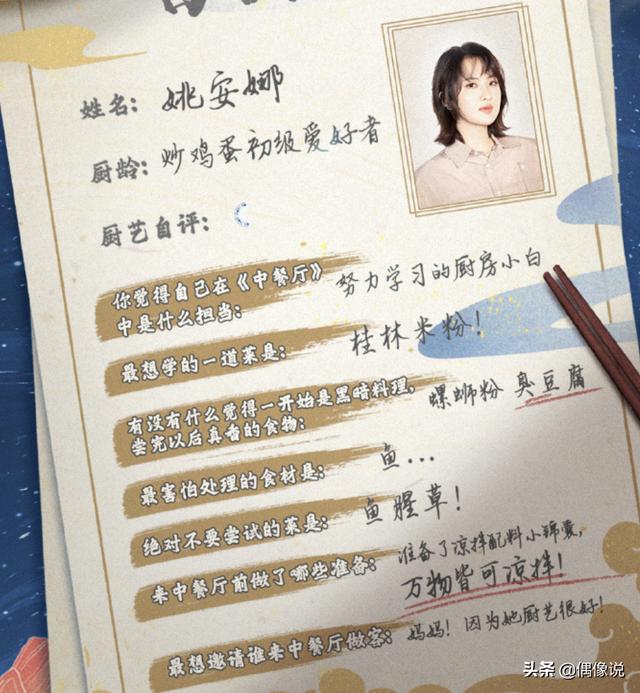 姓名: 姚安娜
厨龄: 炒鸡蛋初级爱好者
厨艺自评:
你觉得自己在《中餐厅》
中是什么担当: 努力学习的厨房小白
最想学的一道菜是: 桂林米粉!
有没有什么觉得一开始是黑暗料理,
尝完以后真香的食物: 螺蛳粉 臭豆腐
最害怕处理的食材是: 鱼...
绝对不要尝试的菜是: 鱼腥草!
来中餐厅前做了哪些准备: 准备了凉拌配料小锦囊,
万物皆可凉拌!
最想邀请谁来中餐厅做客: 妈妈! 因为她厨艺很好!
头条 @偶像说